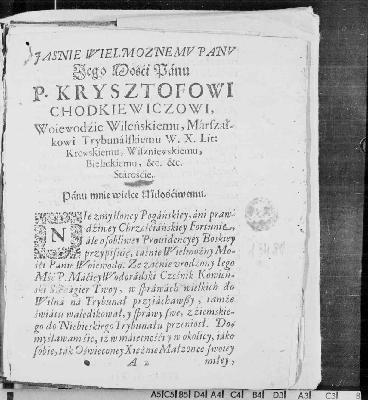 JASNIE WIELMOZNEMV PANV
Jego Mośći Pánu
P. KRYSZTOFOWI
CHODKIEWICZOWI,
Woiewodzie Wileńskiemu, Márszał-
kowi Trybunálskiemu W. X. Lit:
Krewskiemu, Wiszniewskiemu,
Bielickiemu, &c. &c.
Stárośćie.
Pánu mnie wielce Miłośćiwemu.
NIe zmyśloney Pogáńskiey, áni praw-
dźiwey Chrześćiáńskiey Fortunie,
ále osobliwey Prouidencyey Boskiey
przypisuię, iáśnie Wielmożny Mo-
śći Pánie Woiewodo. Że zácnie vrodzony Iego
Mść P. Máćiey Wodorádski Cześnik
Twoy, w spráwách wielkich do
Wilná ná Trybunał przyiáchawszy, támże
świátu waledikował, y spráwy swe, z źiemskie-
go do Niebieskiego Trybunału przeniosł. Do-
mysławam się, iż w máiętnośći y w okolicy, iáko
sobie, ták Oświeconey Xiężnie Małżonce swoiey
A 2 miłey,
A5 C5 B5 D4 A4 C4 B4 D3 A3 C3 B